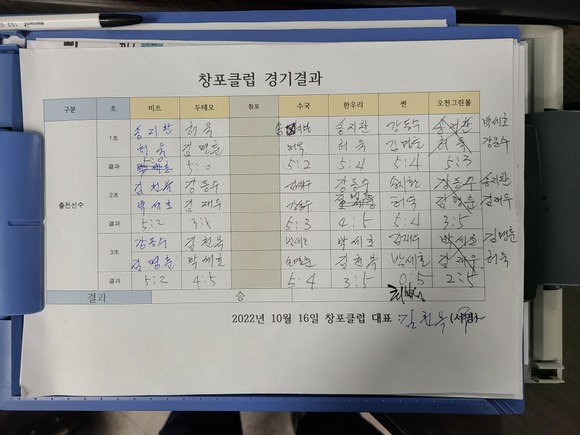 창포클럽 경기결과
구분 조 비트 두테모 창포 수국 한우리 썬 오전그린볼
1조 송지환 허욱 송지환 송지환 강동수 송지환 박세호
허욱 김명훈 허욱 허욱 김명훈 허욱 강동수
결과 5:0 5:0 5:2 5:4 5:4 5:3
출전선수
2조 김천복 강동수 강동수 송지환 강동수 송지환
박세호 김재우 허욱 김명훈 김재우
결과 5:2 5:3 4:5 5:4 3:5
3조 강동수 김천복 박세호 김재우 박세호 김명훈
김명훈 박세호 김천복 박세호 김재우 허욱
결과 5:2 4:5 5:4 3:5 0:5 2:5
결과 승
2022년 10월 16일 창포클럽 대표 : 김천복 (서명)